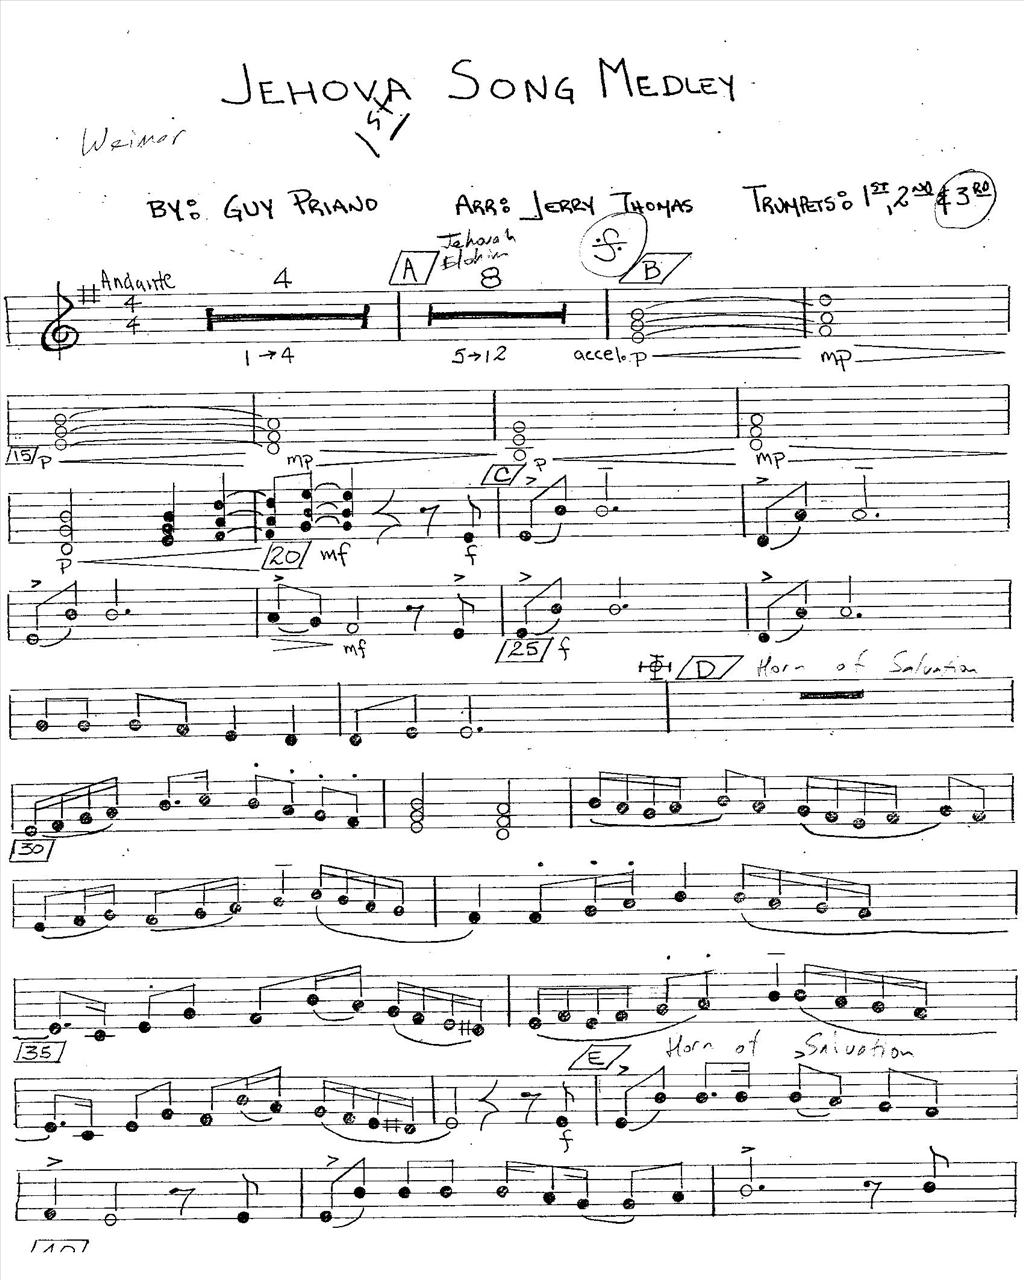 JEHOVA SONG MEDLEY
Weimer
BY: GUY PRIANO ARR: JERRY THOMAS TRUMPETS: 1ST, 2ND & 3RD
A Jehovah
Elohim
B
Andante 4 8
4
4
1→4 5→12 accel. p mp
15 p mp p mp
C
p 20 mf f
mf 25 f
D Horn of Salvation
30
35 E Horn of Salvation
f
40